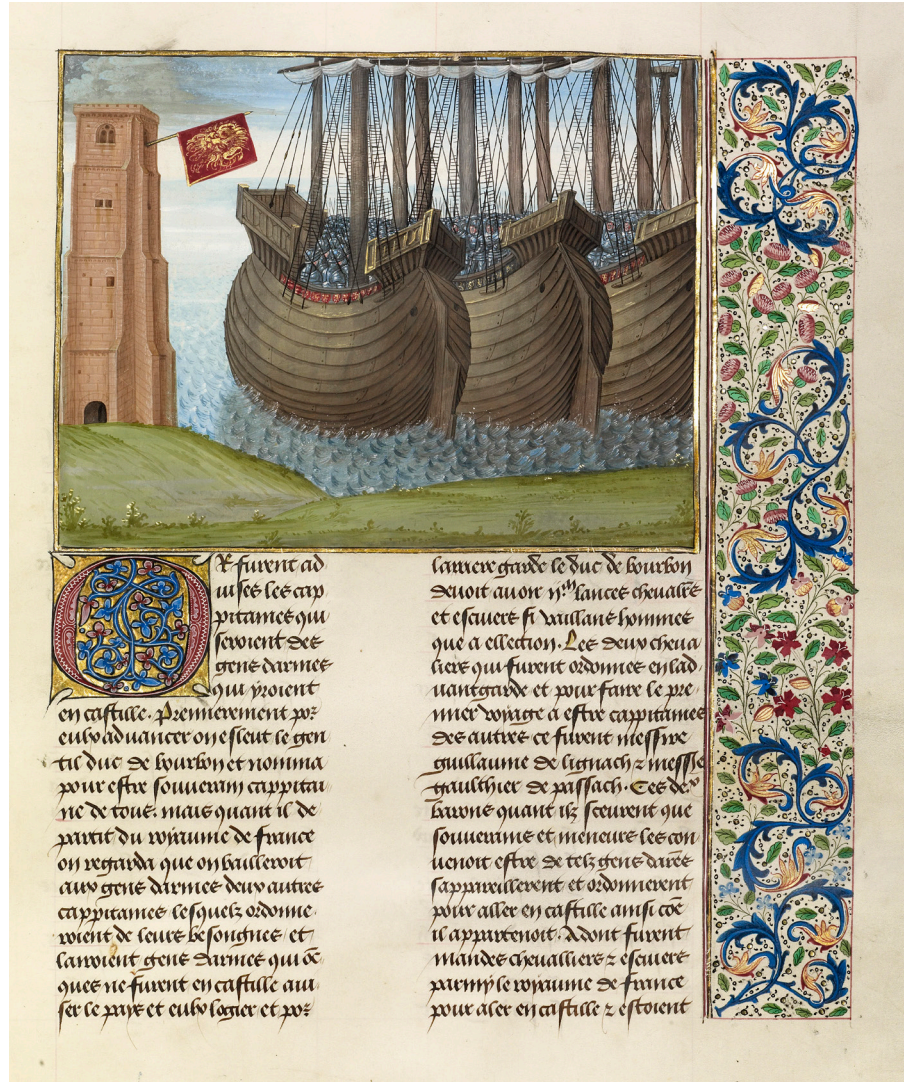 Or furent ad
uises les cap
pitaines qui
seroient des
gens darmes
qui yroient
en castille. Premierement por
eulx aduancer on esleut le gen
til duc de bourbon et nomma
pour estre souuerain cappitai
ne de tous. mais quant il de
partit du royaume de france
on regarda que on bailleroit
aux gens darmes deux autres
cappitaines lesquelz ordonne
roient de leurs besongnes et
lairroient gens darmes qui
ques ne furent en castille aui
ser le pays et eulx logier et por
larriere garde le duc de bourbon
deuoit auoir lances cheualiers
et escuiers si vaillans hommes
que a ellection. Les deux cheua
liers qui furent ordonnes en lad
uantgarde et pour faire le pre
mier voyage a estre cappitaines
des autres ce furent messire
guillaume de lignach z messire
gaulthier de passach. Ces deux
barons quant ilz sceurent que
souuerains et meneurs les con
uenoit estre de telz gens darmes
sappareillerent et ordonnerent
pour aller en castille ainsi coe
il appartenoit. Adont furent
mandes cheualliers z escuiers
parmy le royaume de france
pour aler en castille z estoient